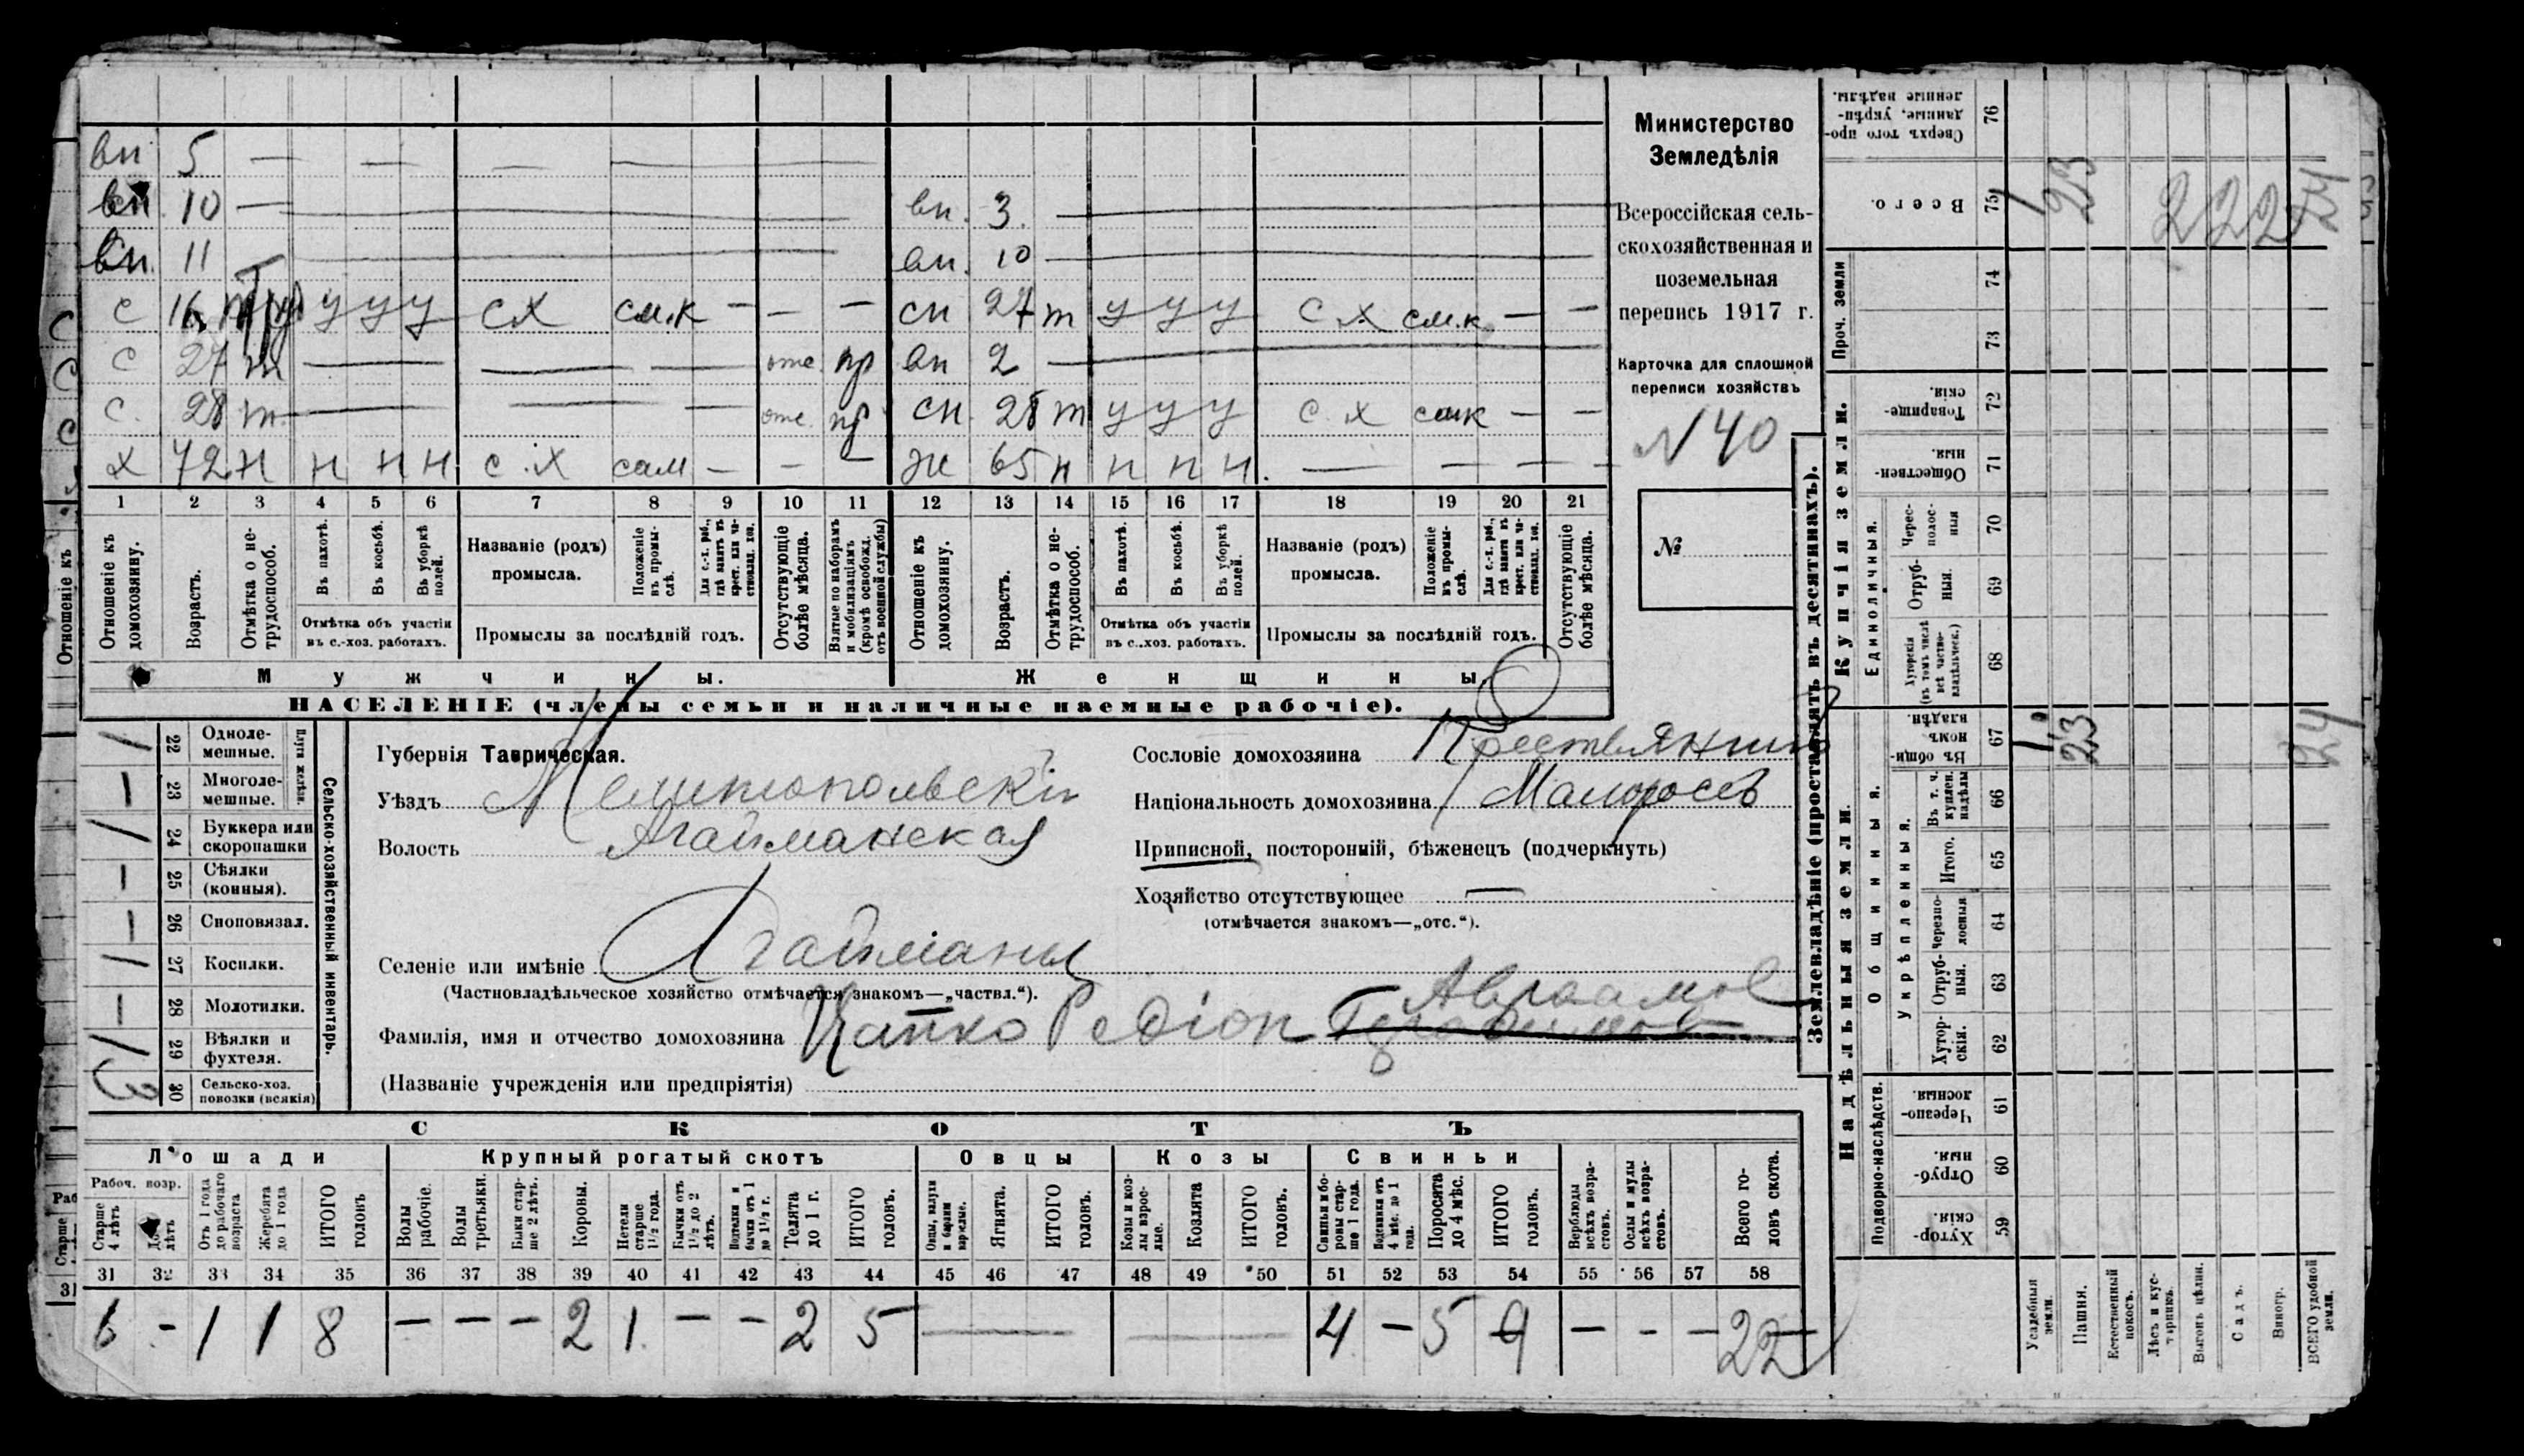 вн 5 — — — —
вн. 10 — вн. 3. —
вн. 11 — вн. 10 —
с 16 т у у у сх см.к — — — сн 27 т у у у с х см.к. — —
с 27 т — — — отс. пр вн 2 —
с. 28 т. — — — отс. пр сн. 28 т у у у с. х смк — —
х 72 н н н н с.х сам — — — ж 65 н н н н. — — — —
1 2 3 4 5 6 7 8 9 10 11 12 13 14 15 16 17 18 19 20 21
Отношеніе къ домохозяину.
Возрастъ.
Отмѣтка о нетрудоспособ.
Въ пахотѣ.
Въ косьбѣ.
Въ уборкѣ полей.
Отмѣтка объ участіи
въ с.-хоз. работахъ.
Названіе (родъ)
промысла.
Положеніе въ промыслѣ.
Для с.-х. раб., гдѣ занятъ въ крест. или частновлад. хоз.
Промыслы за послѣдній годъ.
Отсутствующіе болѣе мѣсяца.
Взятые по наборамъ и мобилизаціямъ (кромѣ освобожд. отъ военной службы)
Отношеніе къ домохозяину.
Возрастъ.
Отмѣтка о нетрудоспособ.
Въ пахотѣ.
Въ косьбѣ.
Въ уборкѣ полей.
Отмѣтка объ участіи
въ с.-хоз. работахъ.
Названіе (родъ)
промысла.
Положеніе въ промыслѣ.
Для с.-х. раб., гдѣ занята въ крест. или частновлад. хоз.
Промыслы за послѣдній годъ.
Отсутствующіе болѣе мѣсяца.
Мужчины. Женщины.
НАСЕЛЕНІЕ (члены семьи и наличные наемные рабочіе).
Министерство
Земледѣлія
Всероссійская сель-
скохозяйственная и
поземельная
перепись 1917 г.
Карточка для сплошной
переписи хозяйствъ
N 40
№
22 Одноле-
мешные.
23 Многоле-
мешные.
Плуги желѣзн.
24 Буккера или
скоропашки
25 Сѣялки
(конныя).
26 Сноповязал.
27 Косилки.
28 Молотилки.
29 Вѣялки и
фухтеля.
30 Сельско-хоз.
повозки (всякія)
3
Сельско-хозяйственный инвентарь.
Губернія Таврическая.
Уѣздъ Мелитопольскій
Волость Агайманская
Селеніе или имѣніе Агайманы
(Частновладѣльческое хозяйство отмѣчается знакомъ—„частвл.“).
Авраамов
Фамилія, имя и отчество домохозяина Чапко Редіон
(Названіе учрежденія или предпріятія)
Сословіе домохозяина Крестьянинъ
Національность домохозяина Малороссъ
Приписной, посторонній, бѣженецъ (подчеркнуть)
Хозяйство отсутствующее —
(отмѣчается знакомъ—„отс.“).
СКОТЪ
Лошади Крупный рогатый скотъ Овцы Козы Свиньи
Рабоч. возр.
Старше 4 лѣтъ
До лѣтъ
Отъ 1 года до рабочаго возраста
Жеребята до 1 года
ИТОГО головъ
Волы рабочіе.
Волы третьяки.
Быки старше 2 лѣтъ.
Коровы.
Нетели старше 1½ года.
Бычки отъ 1½ до 2 лѣтъ.
Подтелки и бычки отъ 1 до 1½ г.
Телята до 1 г.
ИТОГО головъ.
Овцы, валухи и бараны взрослые.
Ягнята.
ИТОГО головъ.
Козы и козлы взрослые.
Козлята
ИТОГО головъ.
Свиньи и боровы старше 1 года.
Подсвинки отъ 4 мѣс. до 1 года.
Поросята до 4 мѣс.
ИТОГО головъ.
Верблюды всѣхъ возрастовъ.
Ослы и мулы всѣхъ возрастовъ.
Всего головъ скота.
31 32 33 34 35 36 37 38 39 40 41 42 43 44 45 46 47 48 49 50 51 52 53 54 55 56 57 58
6 - 1 1 8 — — — 2 1. — — 2 5 — — 4 — 5 9 — - — 22
Землевладѣніе (проставлять въ десятинахъ).
Купчія земли.
Надѣльныя земли.
Проч. земли
Единоличныя.
Общинныя.
Укрѣпленныя.
Подворно-наслѣдств.
76 Сверхъ того проданные, укрѣпленные надѣлы.
75 Всего.
74
73
72 Товарищескія.
71 Общественныя.
70 Чересполосныя
69 Отрубныя.
68 Хуторскія (въ томъ числѣ всѣ частновладѣльческ.)
67 Въ общинномъ владѣн.
66 Въ т. ч. куплен. надѣлы
65 Итого.
64 Черезполосныя
63 Отрубныя.
62 Хуторскія.
61 Черезполосныя.
60 Отрубныя.
59 Хуторскія.
1 23 24
1 23 24
Усадебныя земли.
Пашня.
Естественный покосъ.
Лѣсъ и кустарникъ.
Выгонъ цѣлин.
Садъ.
Виногр.
ВСЕГО удобной земли.
Отношеніе къ
Старше
31